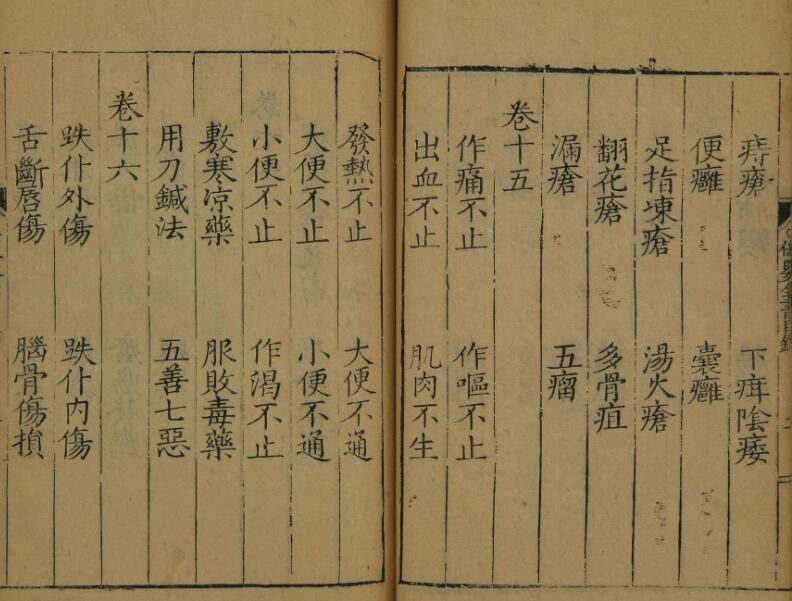 痔瘡　下疳陰痿
便癰　囊癰
足指凍瘡　湯火瘡
翻花瘡　多骨疽
漏瘡　五瘤
卷十五
作痛不止　作嘔不止
出血不止　肌肉不生
發熱不止　大便不通
大便不止　小便不通
小便不止　作渴不止
敷寒凉藥　服敗毒藥
用刀鍼法　五善七惡
卷十六
跌仆外傷　跌仆内傷
舌斷唇傷　腦骨傷損